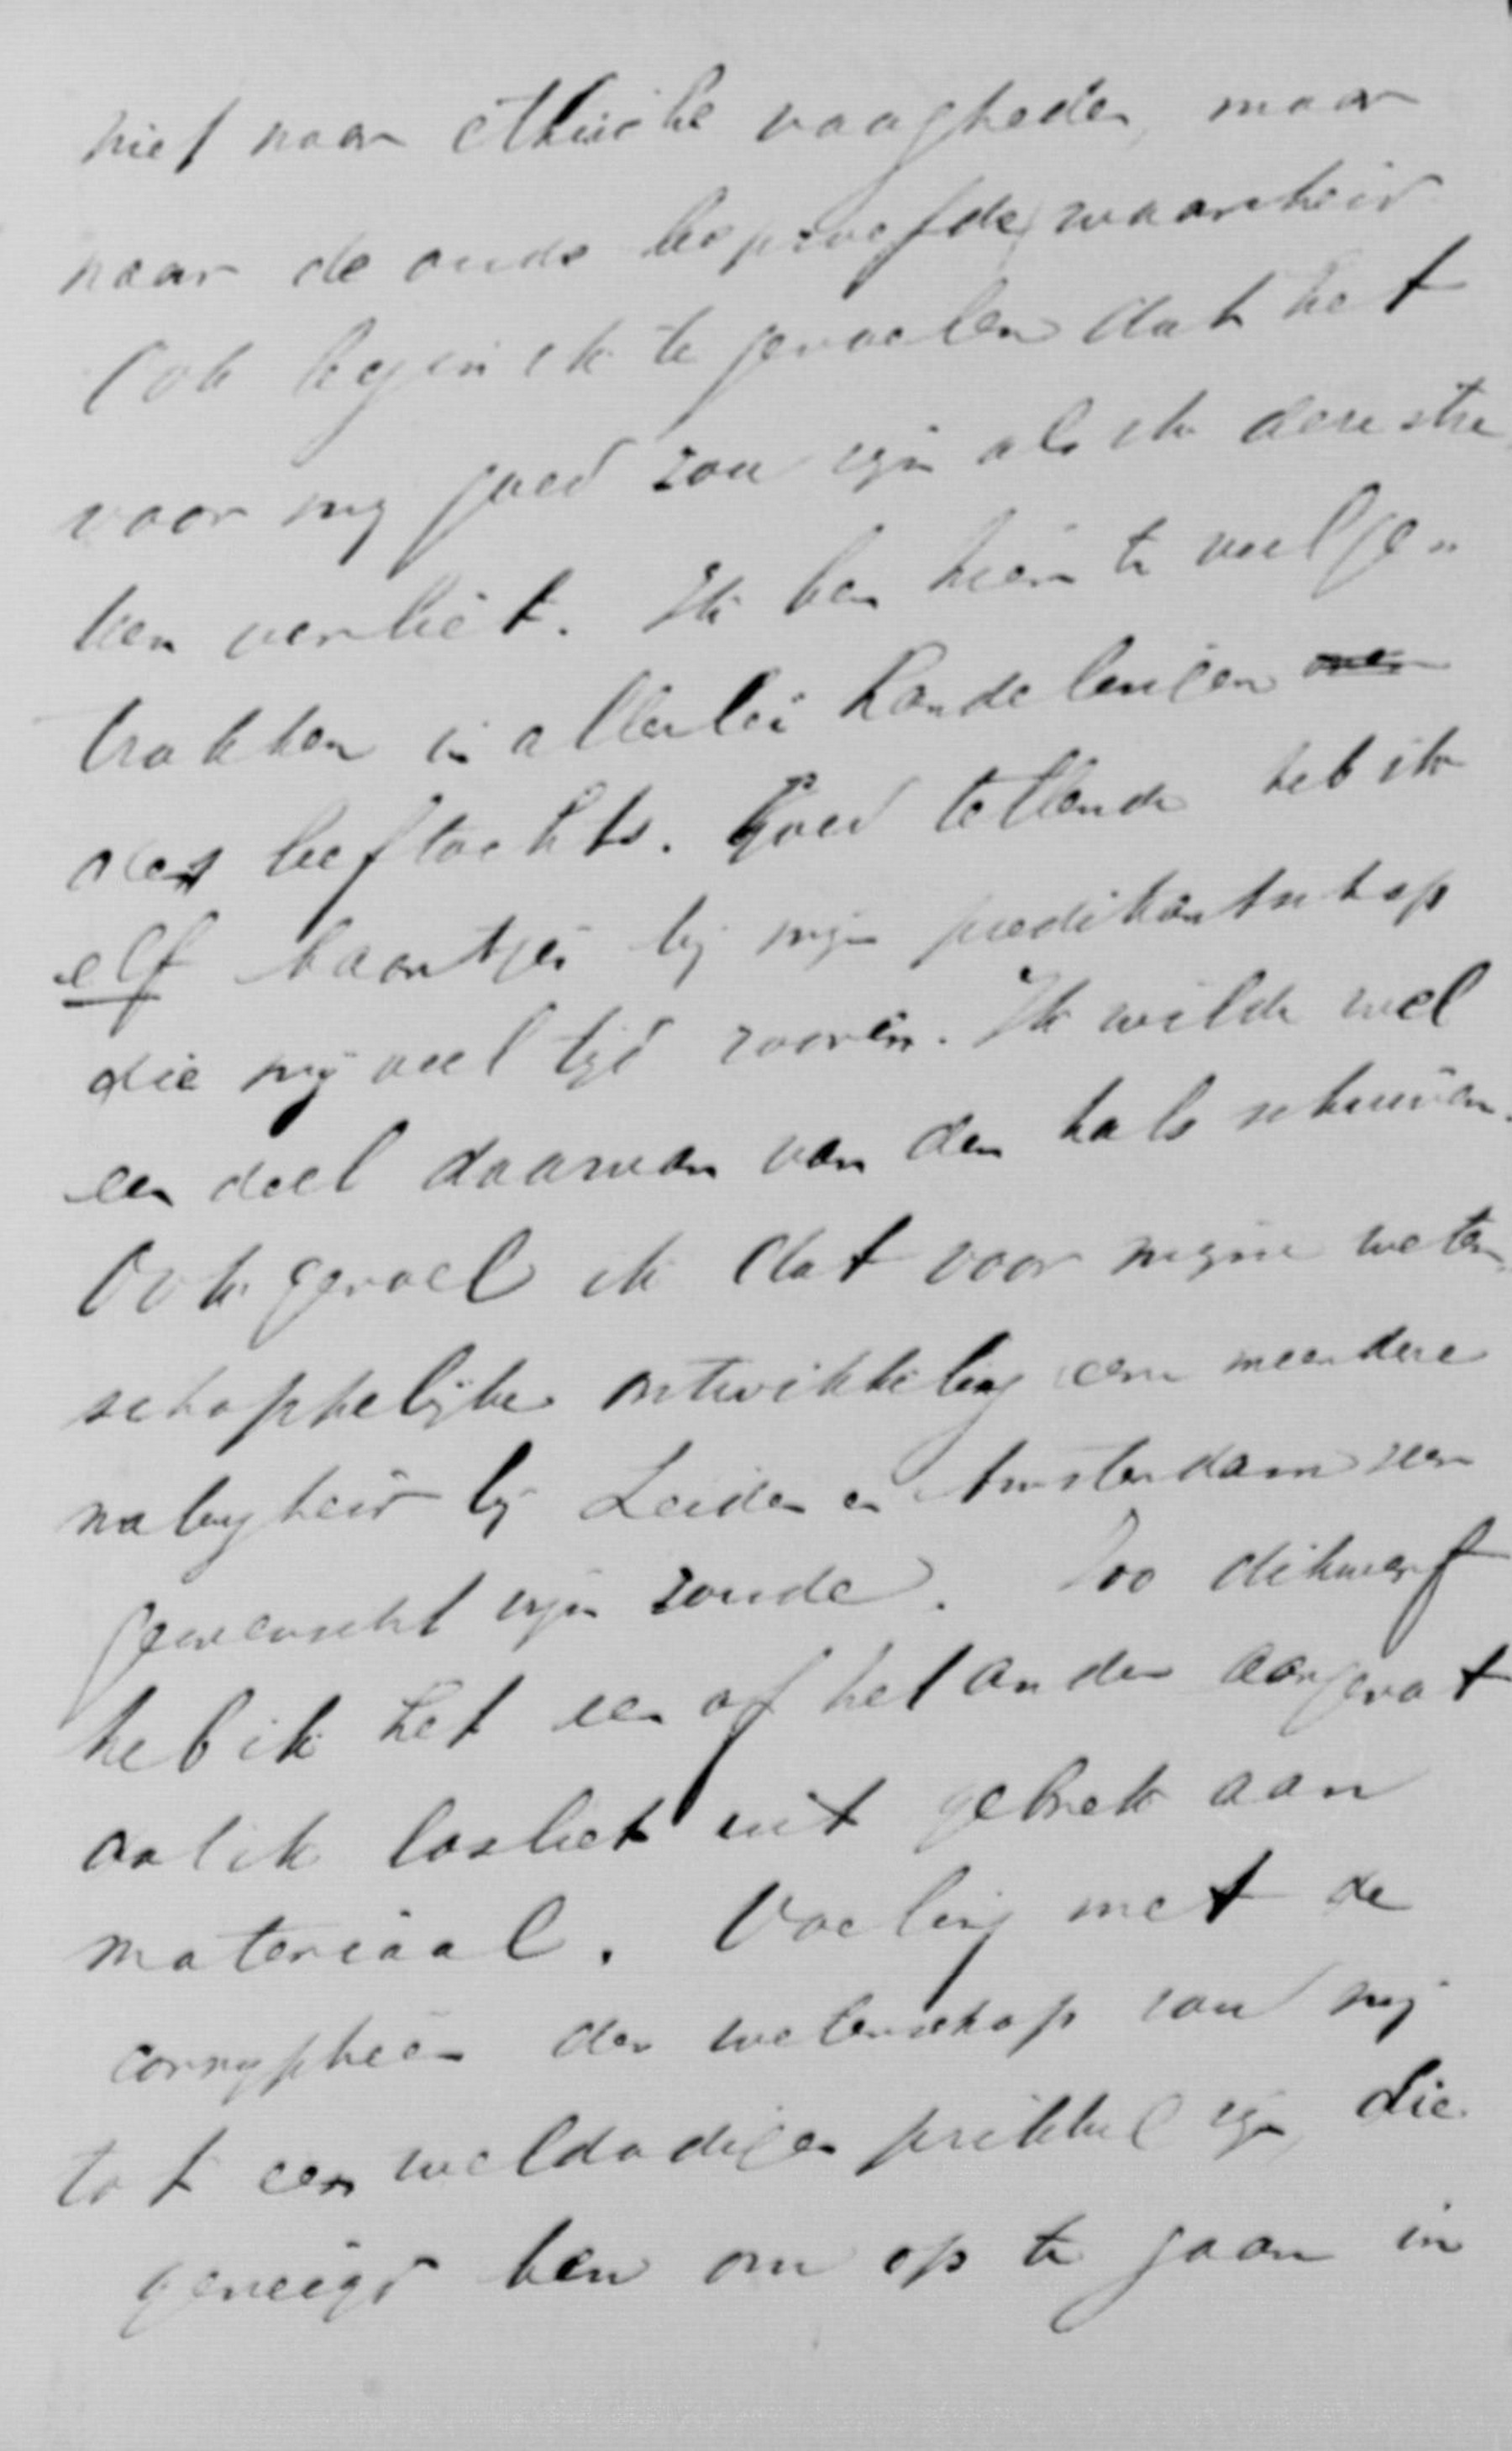 niet naar ethische vaagheden, maar
naar de oude beproefde waarheid
Ook begin ik te gevoelen dat het
voor mij goed zou zijn als ik deze stre
ken verliet. Ik ben hier te veel ge=
trokken in allerlei handelingen
des leeftochts. Goed tellende heb ik
elf baantjes bij mijn predikantschap
die mij veel tijd rooven. Ik wilde wel
een deel daarvan van den hals schuiven.
Ook gevoel ik dat voor mijne weten,
schappelijke ontwikkeling eene meerdere
nabijheid bij Leiden en Amsterdam zeer
gewenscht zijn zoude. Zoo dikwerf
heb ik het een of het ander aangevat
dat ik losliet uit gebrek aan
materiaal. Voeling met de
corrypheën der wetenschap zou mij
tot een weldadigen prikkel zijn, die
geneigd ben om op te gaan in